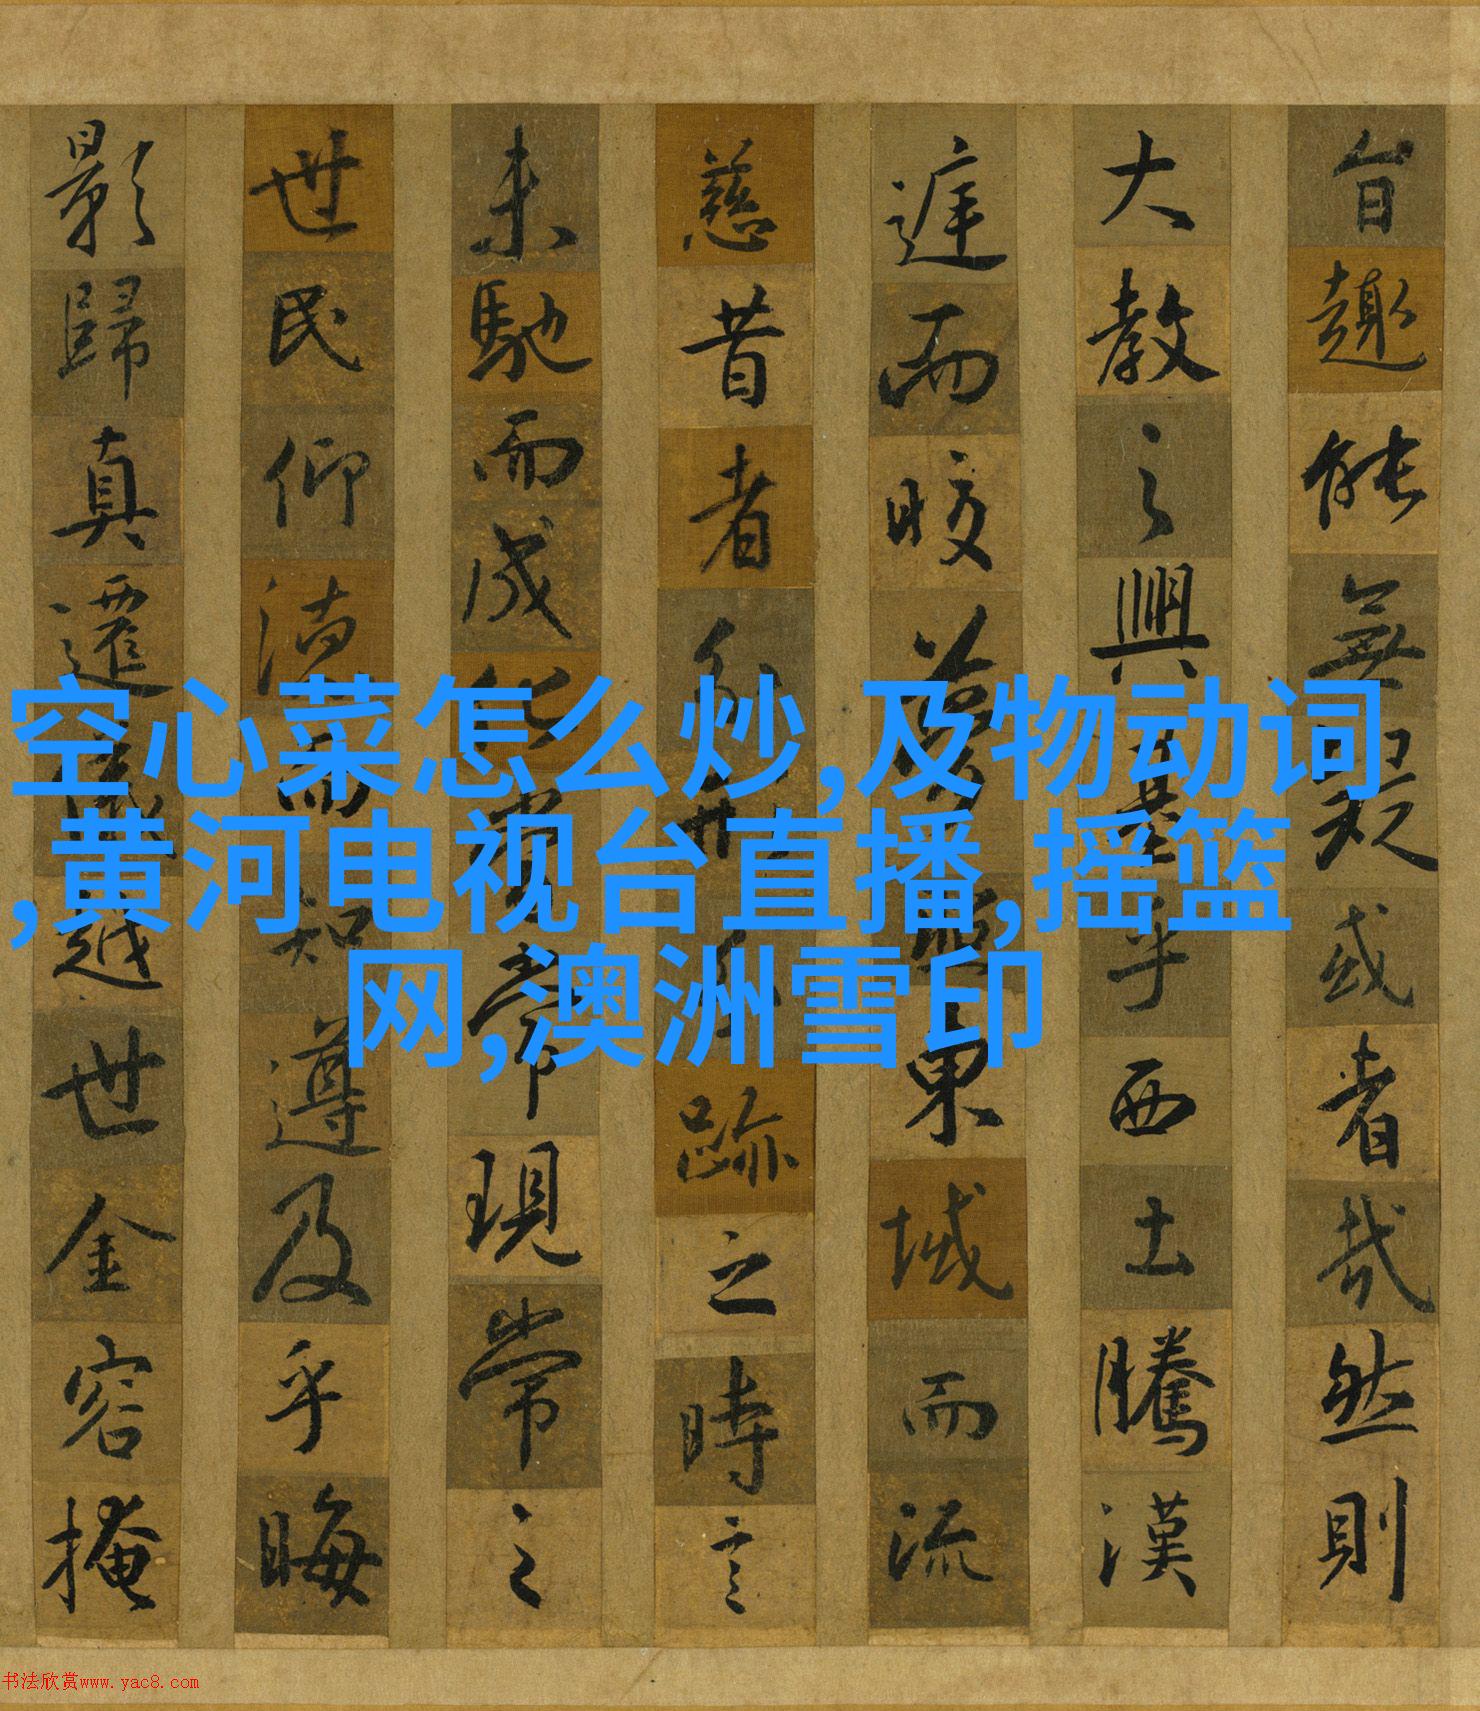 旨趣能無疑或者哉然則
大教之興基乎西土騰漢
庭而皎夢照東域而流
慈昔者分形分跡之時言
未馳而成化當常現常之
世民仰德而知遵及乎晦
影歸真遷儀越世金容掩
空心菜怎么炒,及物动词
,黄河电视台直播,摇篮
网,澳洲雪印
书法欣赏www.yac8.com